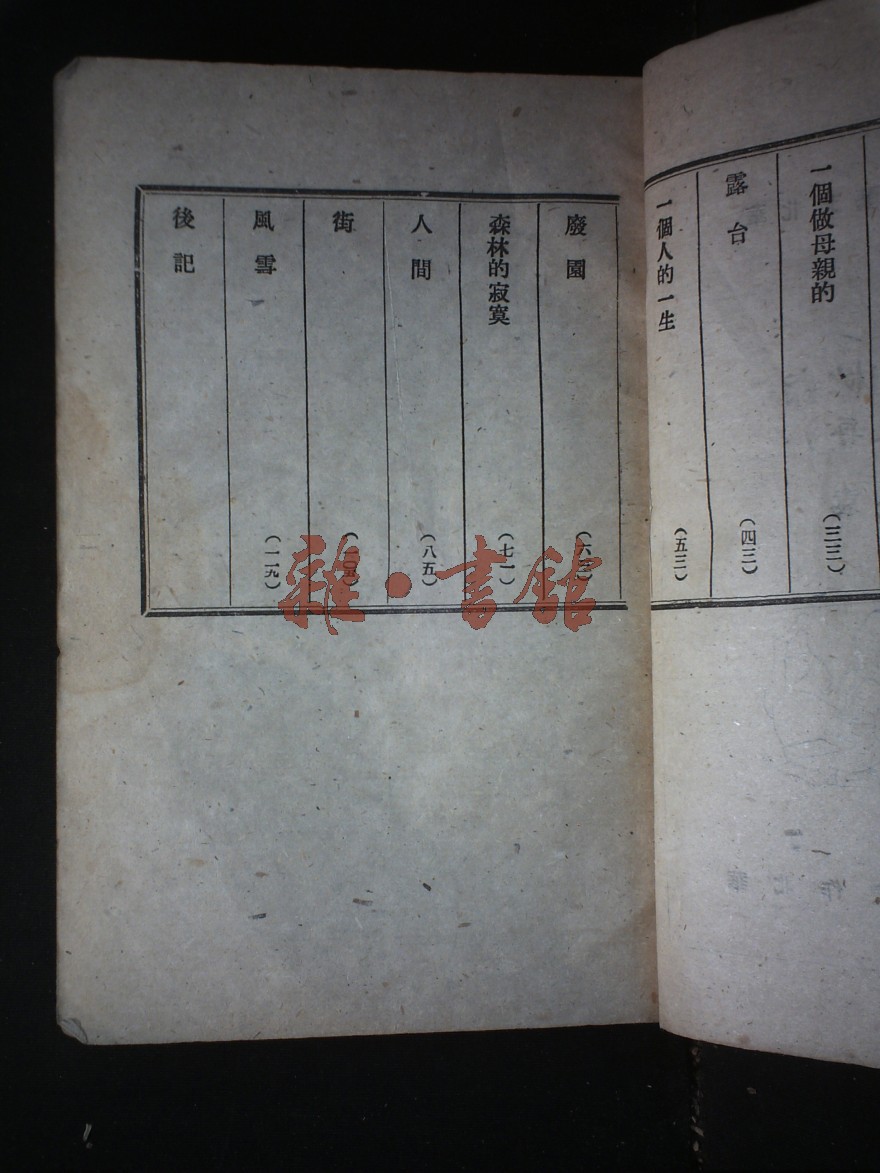 一個做母親的（三三）
露台（四三）
一個人的一生（五三）
廢園
森林的寂寞（七一）
人間（八五）
街
風雪（一一九）
後記
雜·書館